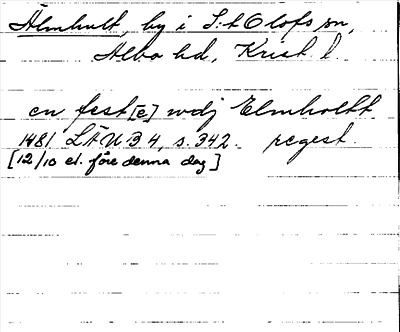 Älmhult, by i S:t Olofs sn,
Albo hd, Krist l
en fest[e] wdj Elmholtt
1481 LÄU B 4, s. 342. regest.
[12/10 el. före denna dag]